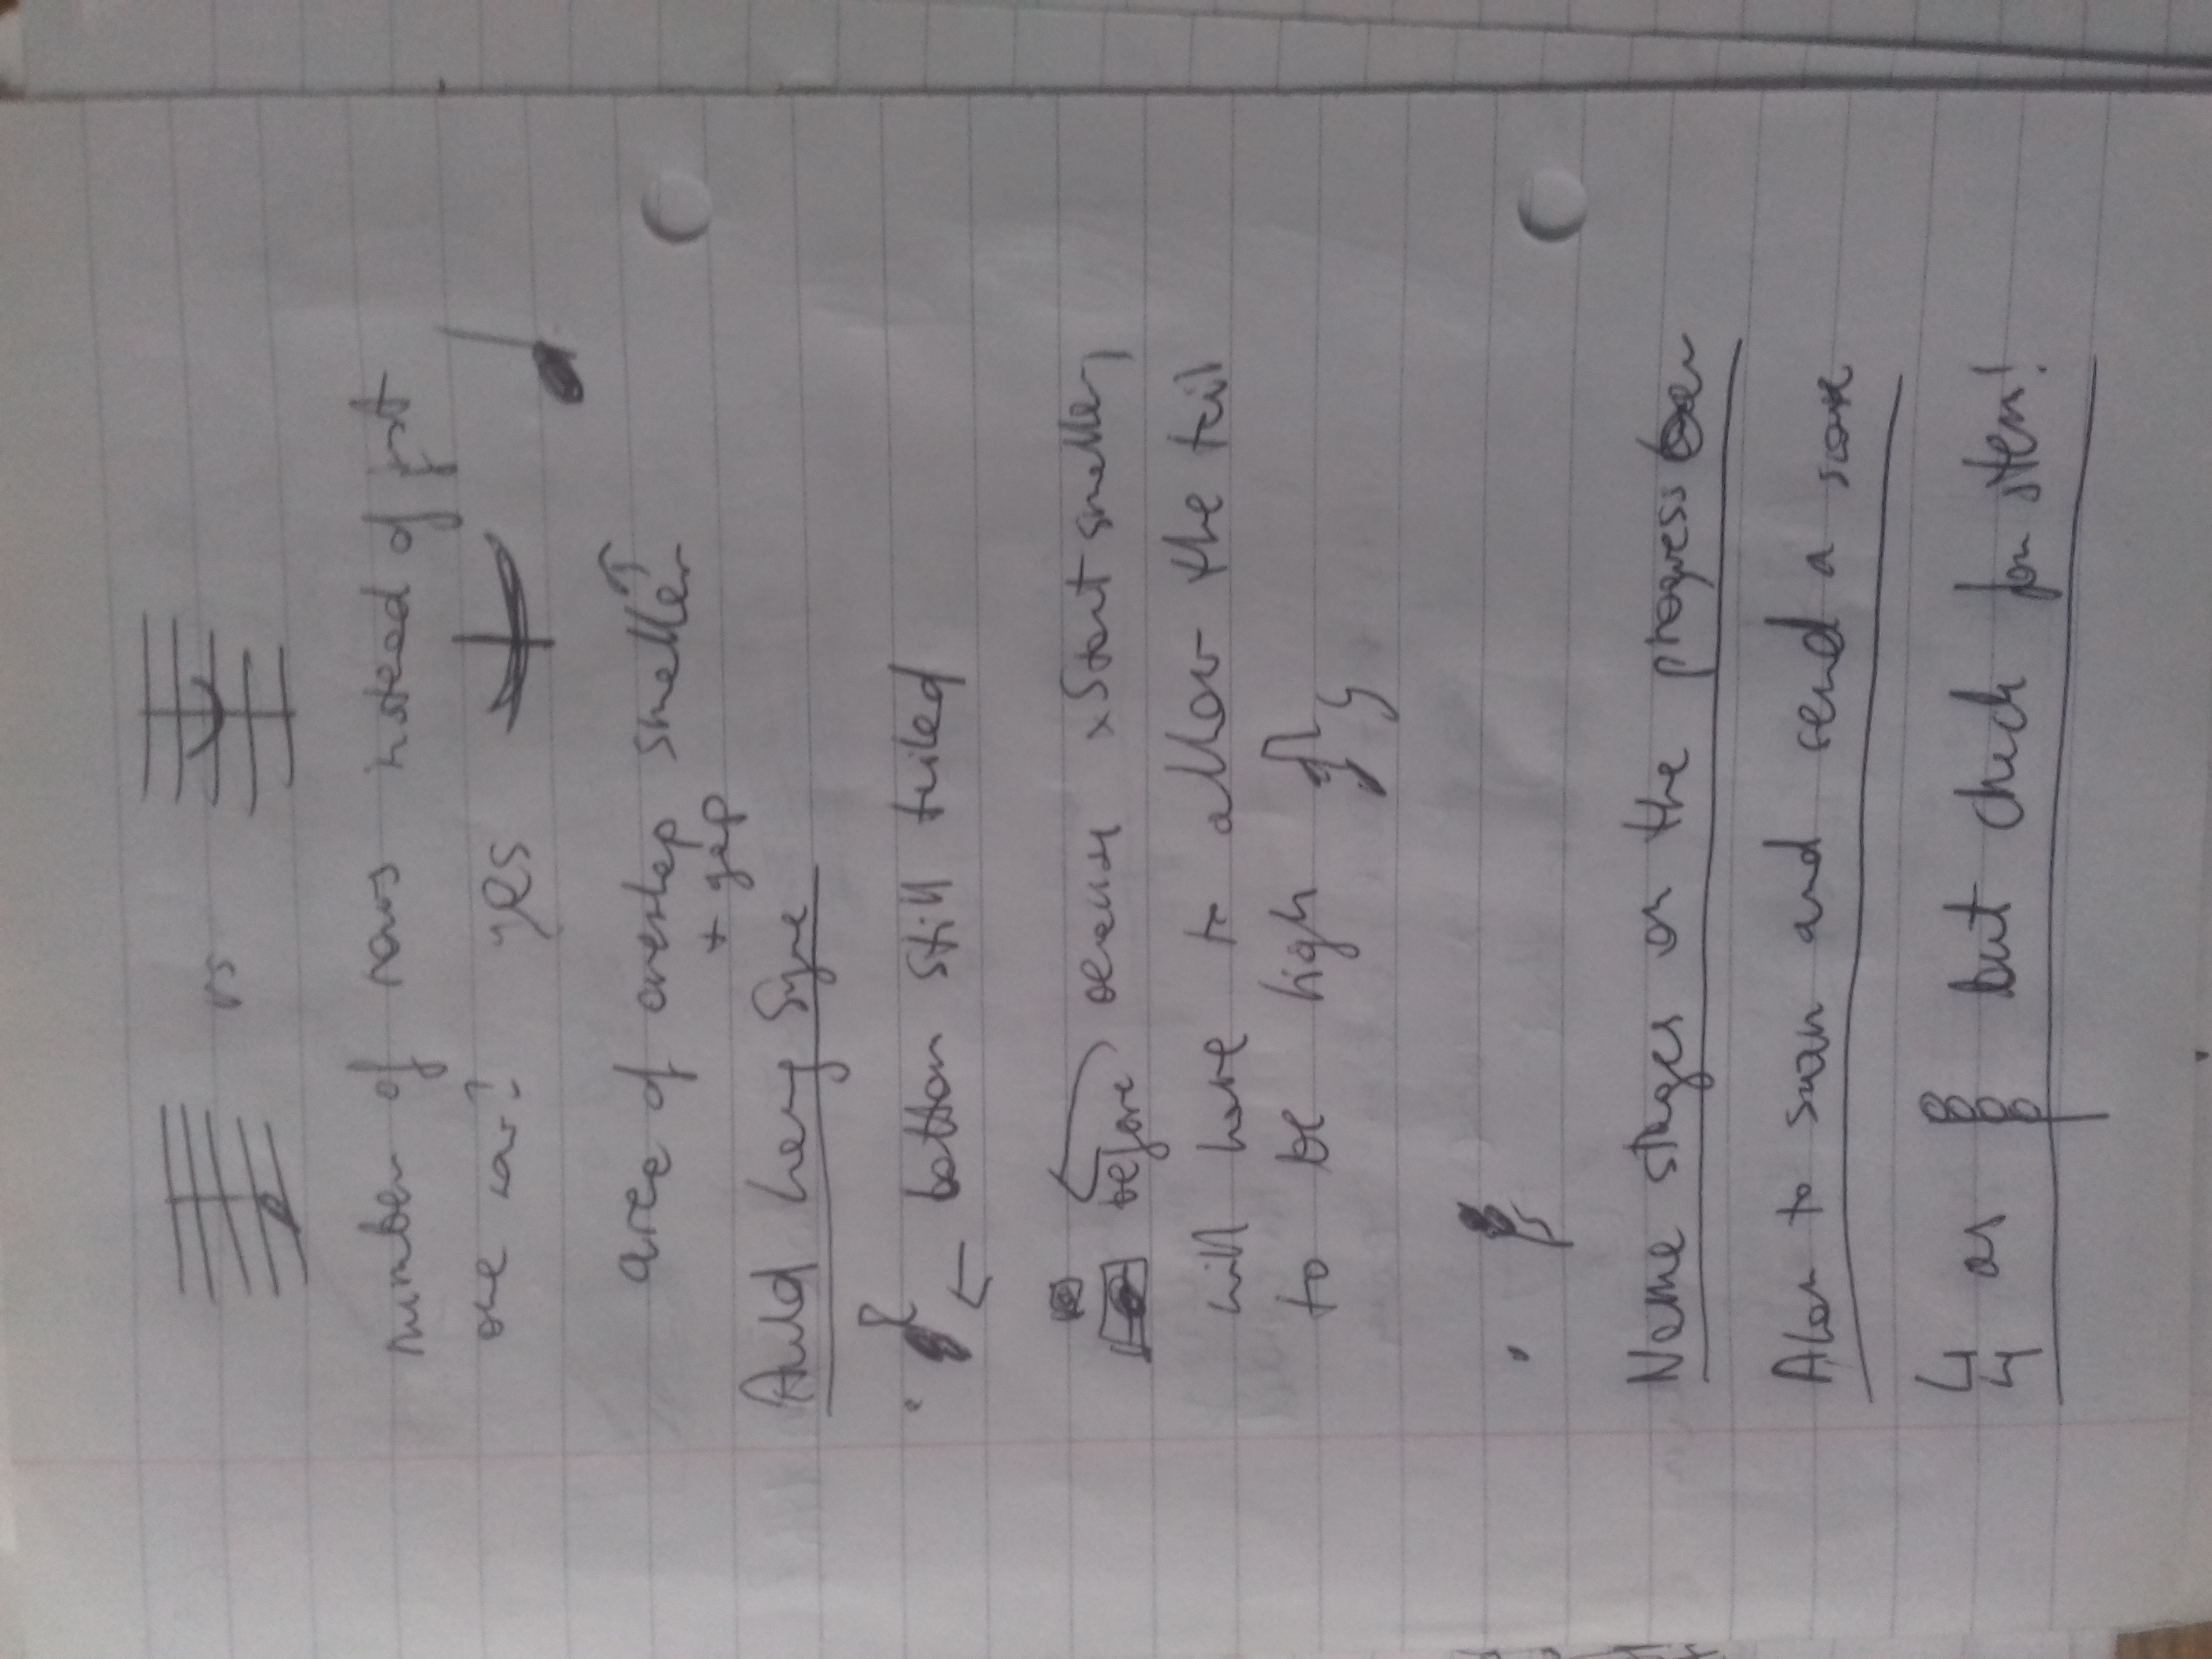 vs
number of rows instead of just
one row? yes
area of overlap smaller
+ gap
Auld Lang Syne
bottom still tailed
before because xStart smaller,
will have to allow the tail
to be high
Name stages on the progress bar
Alan to scan and send a score
4
4 as but check for stem!